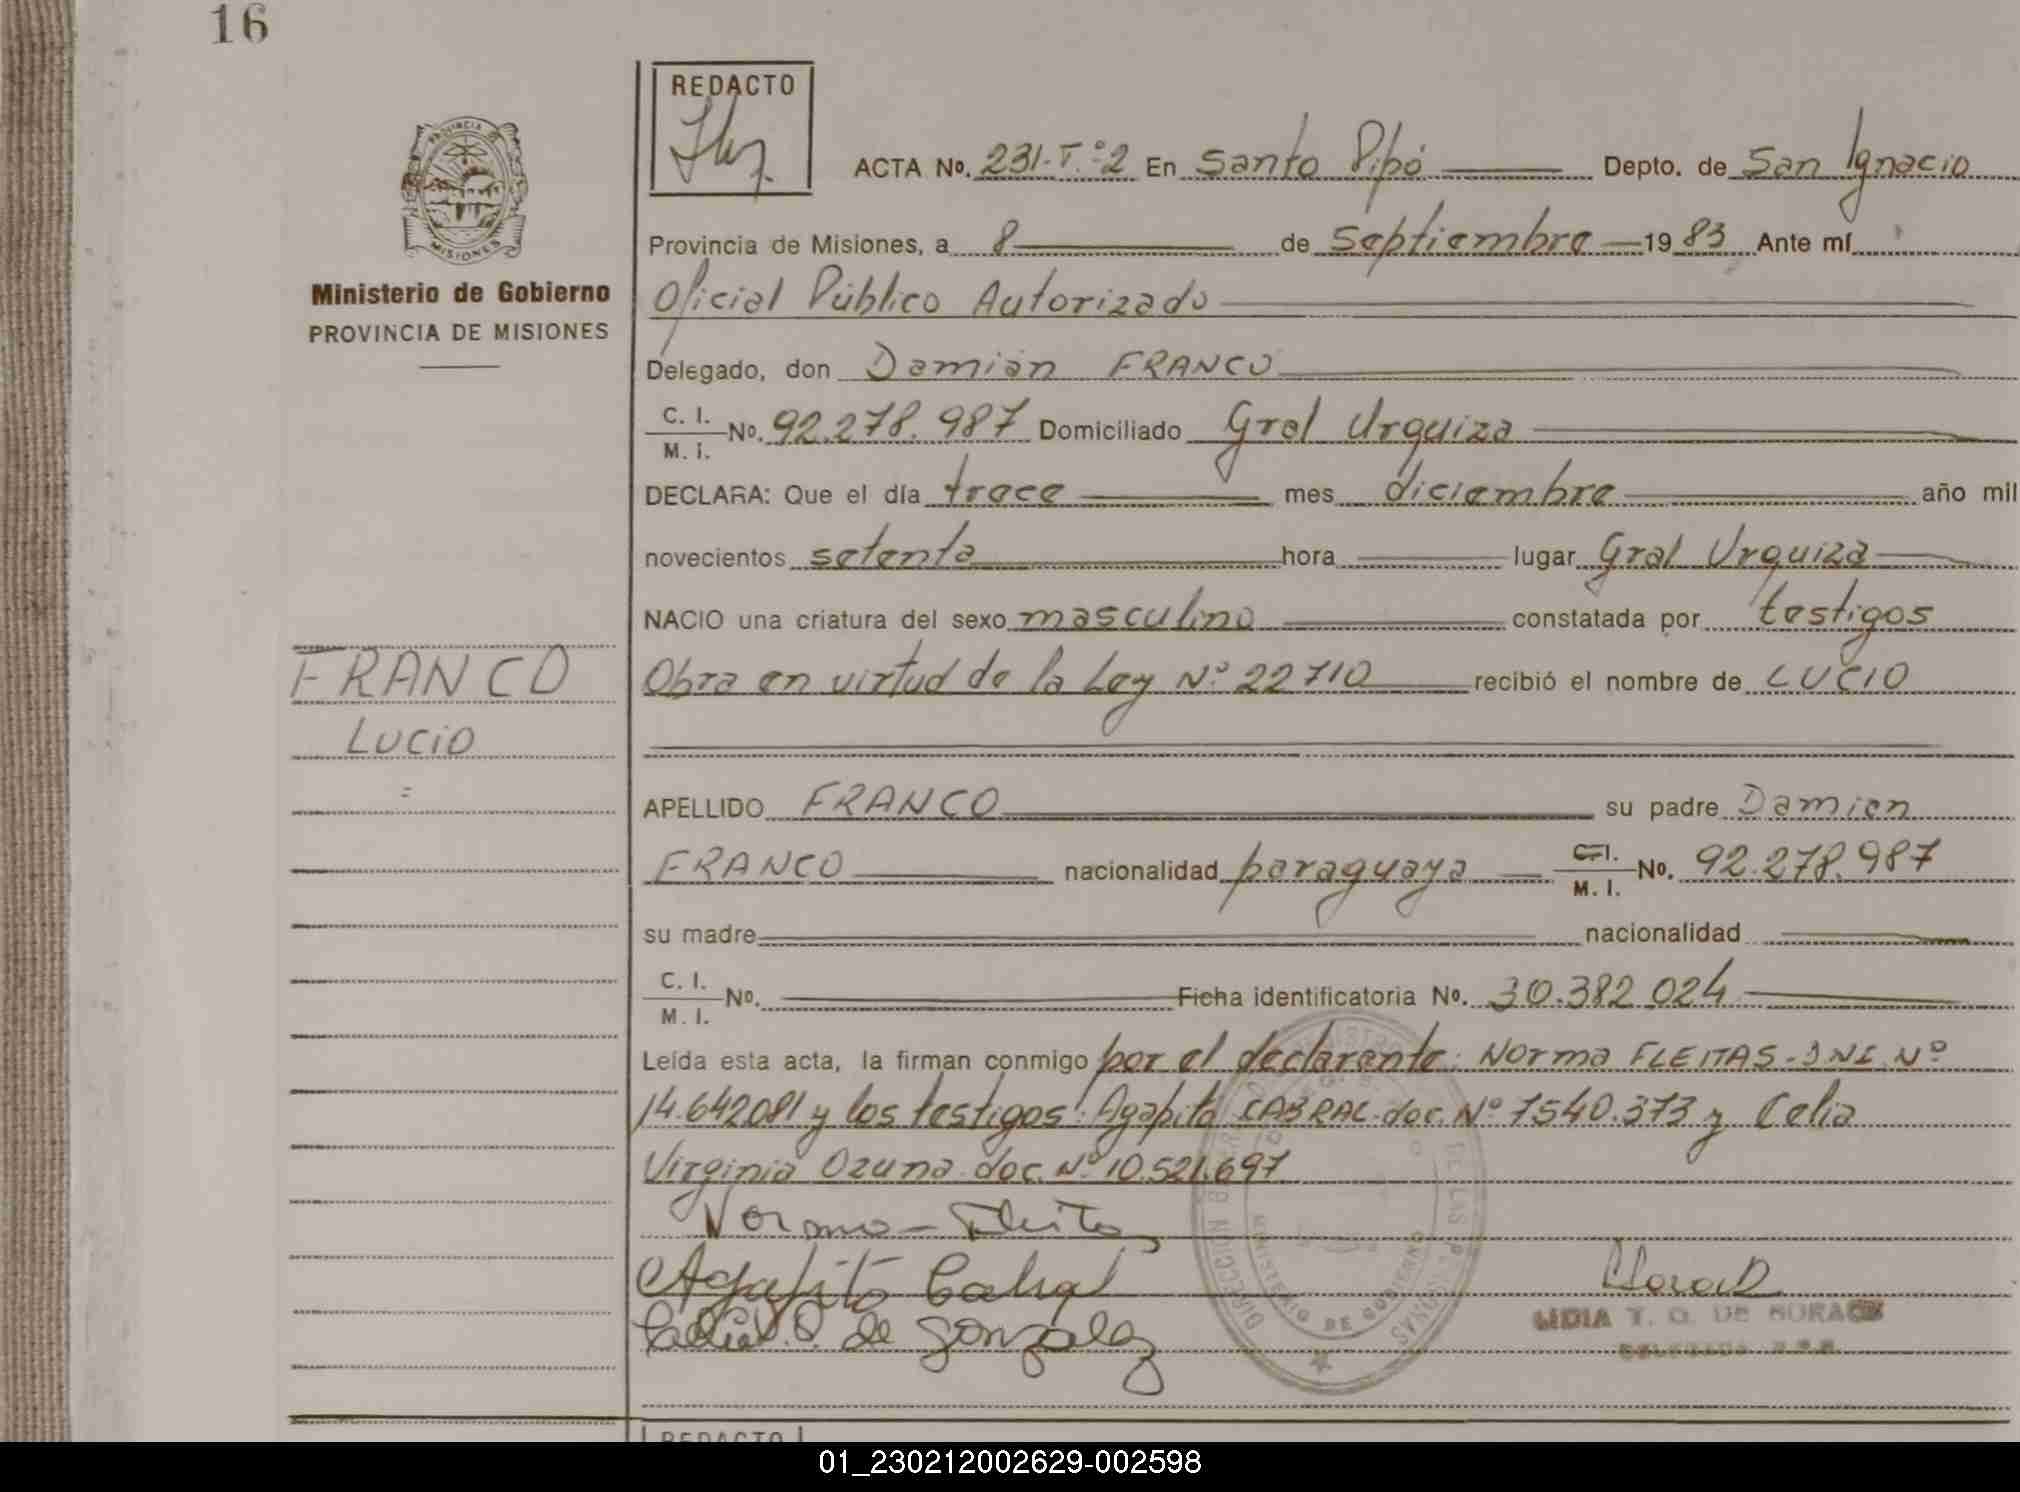 16
REDACTO
ACTA Nº. 231-Tº2 En Santo Pipó Depto. de San Ignacio
PROVINCIA DE
MISIONES
Provincia de Misiones, a 8 de Septiembre 1983 Ante mí
Ministerio de Gobierno
PROVINCIA DE MISIONES
Oficial Público Autorizado
Delegado, don Damián FRANCO
C. I.
M. I. Nº. 92.278.987 Domiciliado Gral Urquiza
DECLARA: Que el día trece mes diciembre año mil
novecientos setenta hora lugar Gral Urquiza
NACIO una criatura del sexo masculino constatada por testigos
FRANCO
Lucio
Obra en virtud de la Ley Nº 22710 recibió el nombre de LUCIO
APELLIDO FRANCO su padre Damian
FRANCO nacionalidad paraguaya C. I.
M. I. Nº. 92.278.987
su madre nacionalidad
C. I.
M. I. Nº. Ficha identificatoria Nº. 30.382.024
Leída esta acta, la firman conmigo por el declarante: Norma FLEITAS-DNI Nº
14.642081 y los testigos: Agapito CABRAL doc. Nº 7540.373 y Celia
Virginia Ozuna doc. Nº 10.521.697
Norma Fleita
Agapito Cabral
de Gonzalez
DIRECCION DE LAS PERSONAS
MINISTERIO DE GOBIERNO
LIDIA T. O. DE
REDACTO
01_230212002629-002598